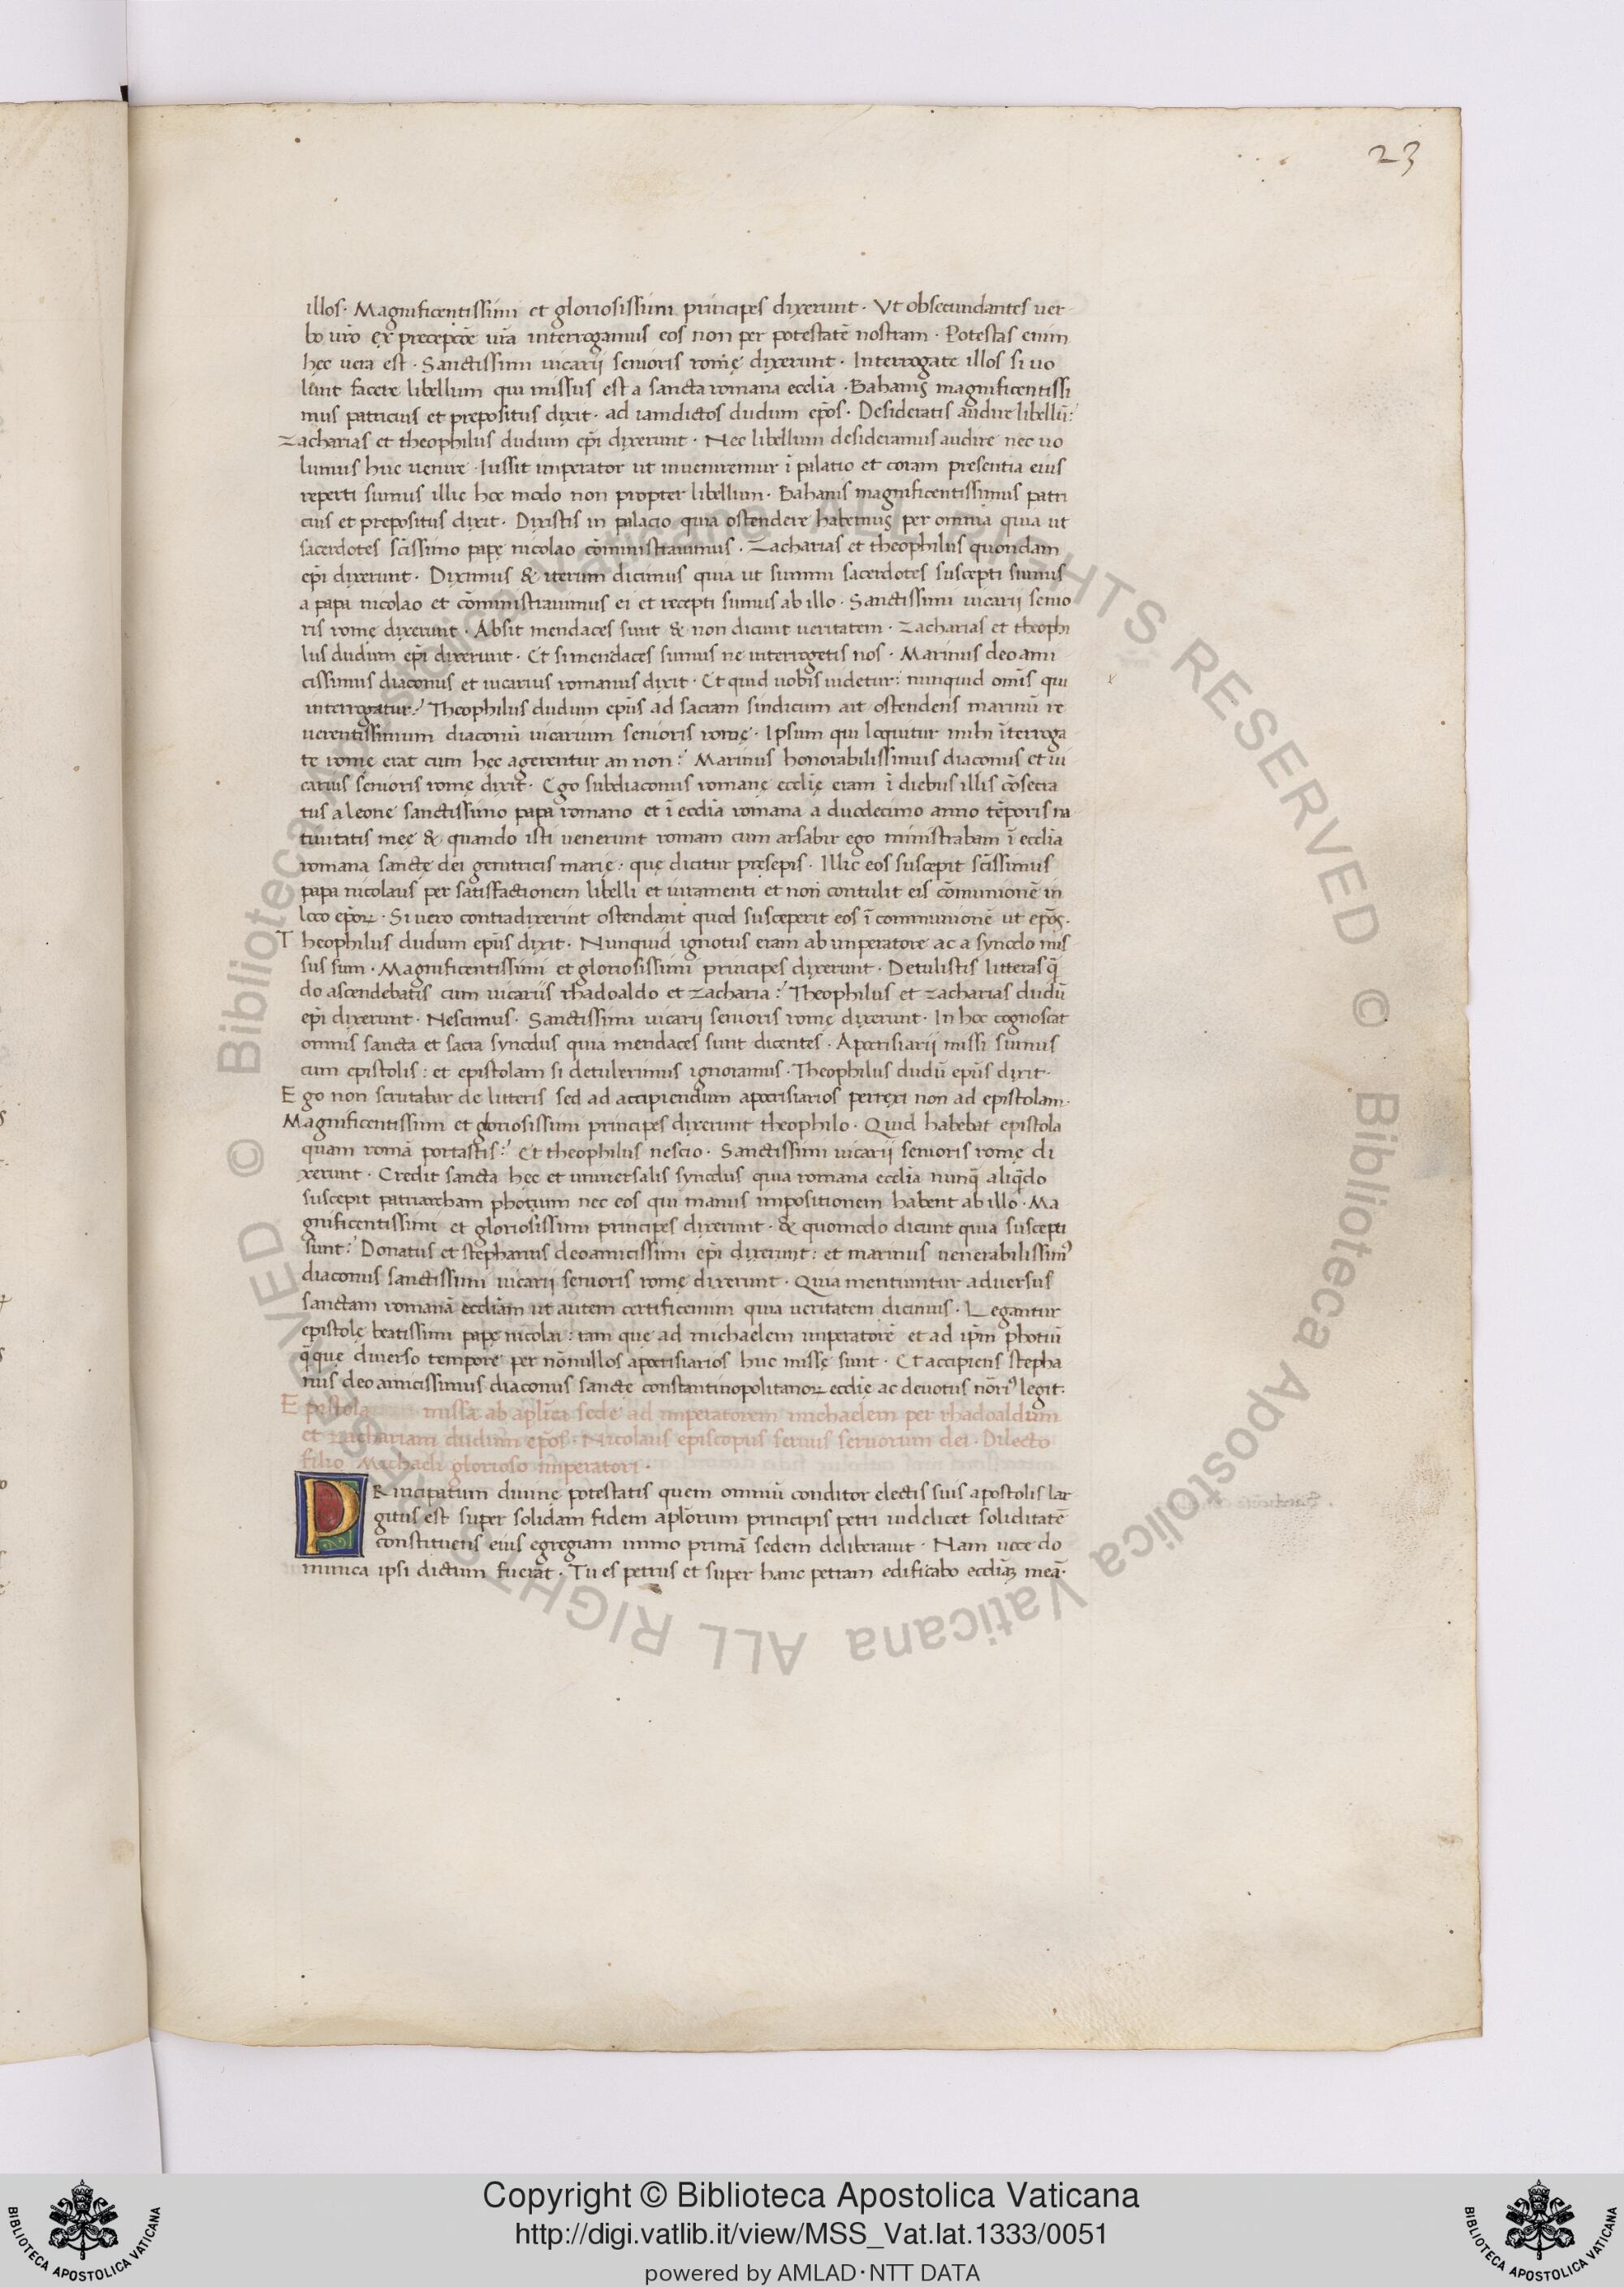 23
illos · Magnificentissimi et gloriosissimi principes dixerunt · Vt obsecundantes uer
bo ur̄o ex precepc̄oe ur̄a interrogamus eos non per potestatē nostram · Potestas enim
hec uera est · Sanctissimi uicarij senioris romę dixerunt · Interrogate illos si uo
lunt facere libellum qui missus est a sancta romana eccl̄ia · Bahanis magnificentissi
mus patricius et prepositus dixit · ad iamdictos dudum ep̄os · Desideratis audire libellū:
Zacharias et theophilus dudum ep̄i dixerunt · Nec libellum desideramus audire nec uo
lumus huc uenire · Iussit imperator ut inueniremur ī palatio et coram presentia eius
reperti sumus illic hoc modo non propter libellum · Bahanis magnificentissimus patri
cius et prepositus dixit · Dixistis in palacio quia ostendere habemus per omnia quia ut
sacerdotes sc̄issimo papę nicolao cōministrauimus · Zacharias et theophilus quondam
ep̄i dixerunt · Diximus & iterum dicimus quia ut summi sacerdotes suscepti sumus
a papa nicolao et cōministrauimus ei et recepti sumus ab illo · Sanctissimi uicarij senio
ris romę dixerunt · Absit mendaces sunt & non dicunt ueritatem · Zacharias et theophi
lus dudum ep̄i dixerunt · Et si mendaces sumus ne interrogetis nos · Marinus deo ami
cissimus diaconus et uicarius romanus dixit · Et quid uobis uidetur: nunquid om̄is qui
interrogatur:' Theophilus dudum ep̄us ad sacram sindicum ait ostendens marinū re
uerentissimum diaconū uicarium senioris romę · Ipsum qui loquitur mihi īterroga
te romę erat cum hec agerentur an non:' Marinus honorabilissimus diaconus et ui
carius senioris romę dixit · Ego subdiaconus romanę eccl̄ię eram ī diebus illis cōsecra
tus a leone sanctissimo papa romano et ī eccl̄ia romana a duodecimo anno tēporis na
tiuitatis meę & quando isti uenerunt romam cum arsabir ego ministrabam ī eccl̄ia
romana sanctę dei genitricis marię · quę dicitur pręsepis · Illic eos suscepit sc̄issimus
papa nicolaus per satisfactionem libelli et iuramenti et non contulit eis cōmunionē in
loco ep̄oꝝ · Si uero contradixerint ostendant quod susceperit eos ī communionē ut ep̄os ·
Theophilus dudum ep̄us dixit · Nunquid ignotus eram ab imperatore ac a synodo mis
sus sum · Magnificentissimi et gloriosissimi principes dixerunt · Detulistis litteras q̄
do ascendebatis cum uicariis rhadoaldo et zacharia:' Theophilus et zacharias dudū
ep̄i dixerunt · Nescimus · Sanctissimi uicarij senioris romę dixerunt · In hoc cognoscat
omnis sancta et sacra synodus quia mendaces sunt dicentes · Apocrisiarij missi sumus
cum epistolis: et epistolam si detulerimus ignoramus · Theophilus dudū ep̄us dixit ·
Ego non scrutabar de litteris sed ad accipiendum apocrisiarios perrexi non ad epistolam ·
Magnificentissimi et gloriosissimi principes dixerunt theophilo · Quid habebat epistola
quam romā portastis:' Et theophilus nescio · Sanctissimi uicarij senioris romę di
xerunt · Credit sancta hęc et uniuersalis synodus quia romana eccl̄ia nunq̄ aliq̄do
suscepit patriarcham photium nec eos qui manus impositionem habent ab illo · Ma
gnificentissimi et gloriosissimi principes dixerunt · & quomodo dicunt quia suscepti
sunt:' Donatus et stephanus deo amicissimi ep̄i dixerunt: et marinus uenerabilissimꝰ
diaconus sanctissimi uicarij senioris romę dixerunt · Quia mentiuntur aduersus
sanctam romanā eccl̄iam ut autem certificemini quia ueritatem dicimus · Legantur
epistolę beatissimi papę nicolai: tam quę ad michaelem imperatorē et ad ip̄m photiū
q̄ quę diuerso tempore per nōnullos apocrisiarios huc missę sunt · Et accipiens stepha
nus deo amicissimus diaconus sanctę constantinopolitanoꝝ eccl̄ię ac deuotus nōriꝰ legit:
Epistola missa ab apl̄ica sede ad imperatorem michaelem per rhadoaldum
et zachariam dudum ep̄os · Nicolaus episcopus seruus seruorum dei · Dilecto
filio Michaeli glorioso imperatori ·
PRincipatum diuinę potestatis quem omniū conditor electis suis apostolis lar
gitus est super solidam fidem apl̄orum principis petri uidelicet soliditatē
constituens eius egregiam immo primā sedem deliberauit · Nam uoce do
minica ipsi dictum fuerat · Tu es petrus et super hanc petram edificabo eccl̄iaꝫ meā ·
© Biblioteca Apostolica Vaticana ALL RIGHTS RESERVED © Biblioteca Apostolica Vaticana ALL RIGHTS RESERVED
Copyright © Biblioteca Apostolica Vaticana
http://digi.vatlib.it/view/MSS_Vat.lat.1333/0051
powered by AMLAD·NTT DATA
BIBLIOTECA APOSTOLICA VATICANA
BIBLIOTECA APOSTOLICA VATICANA